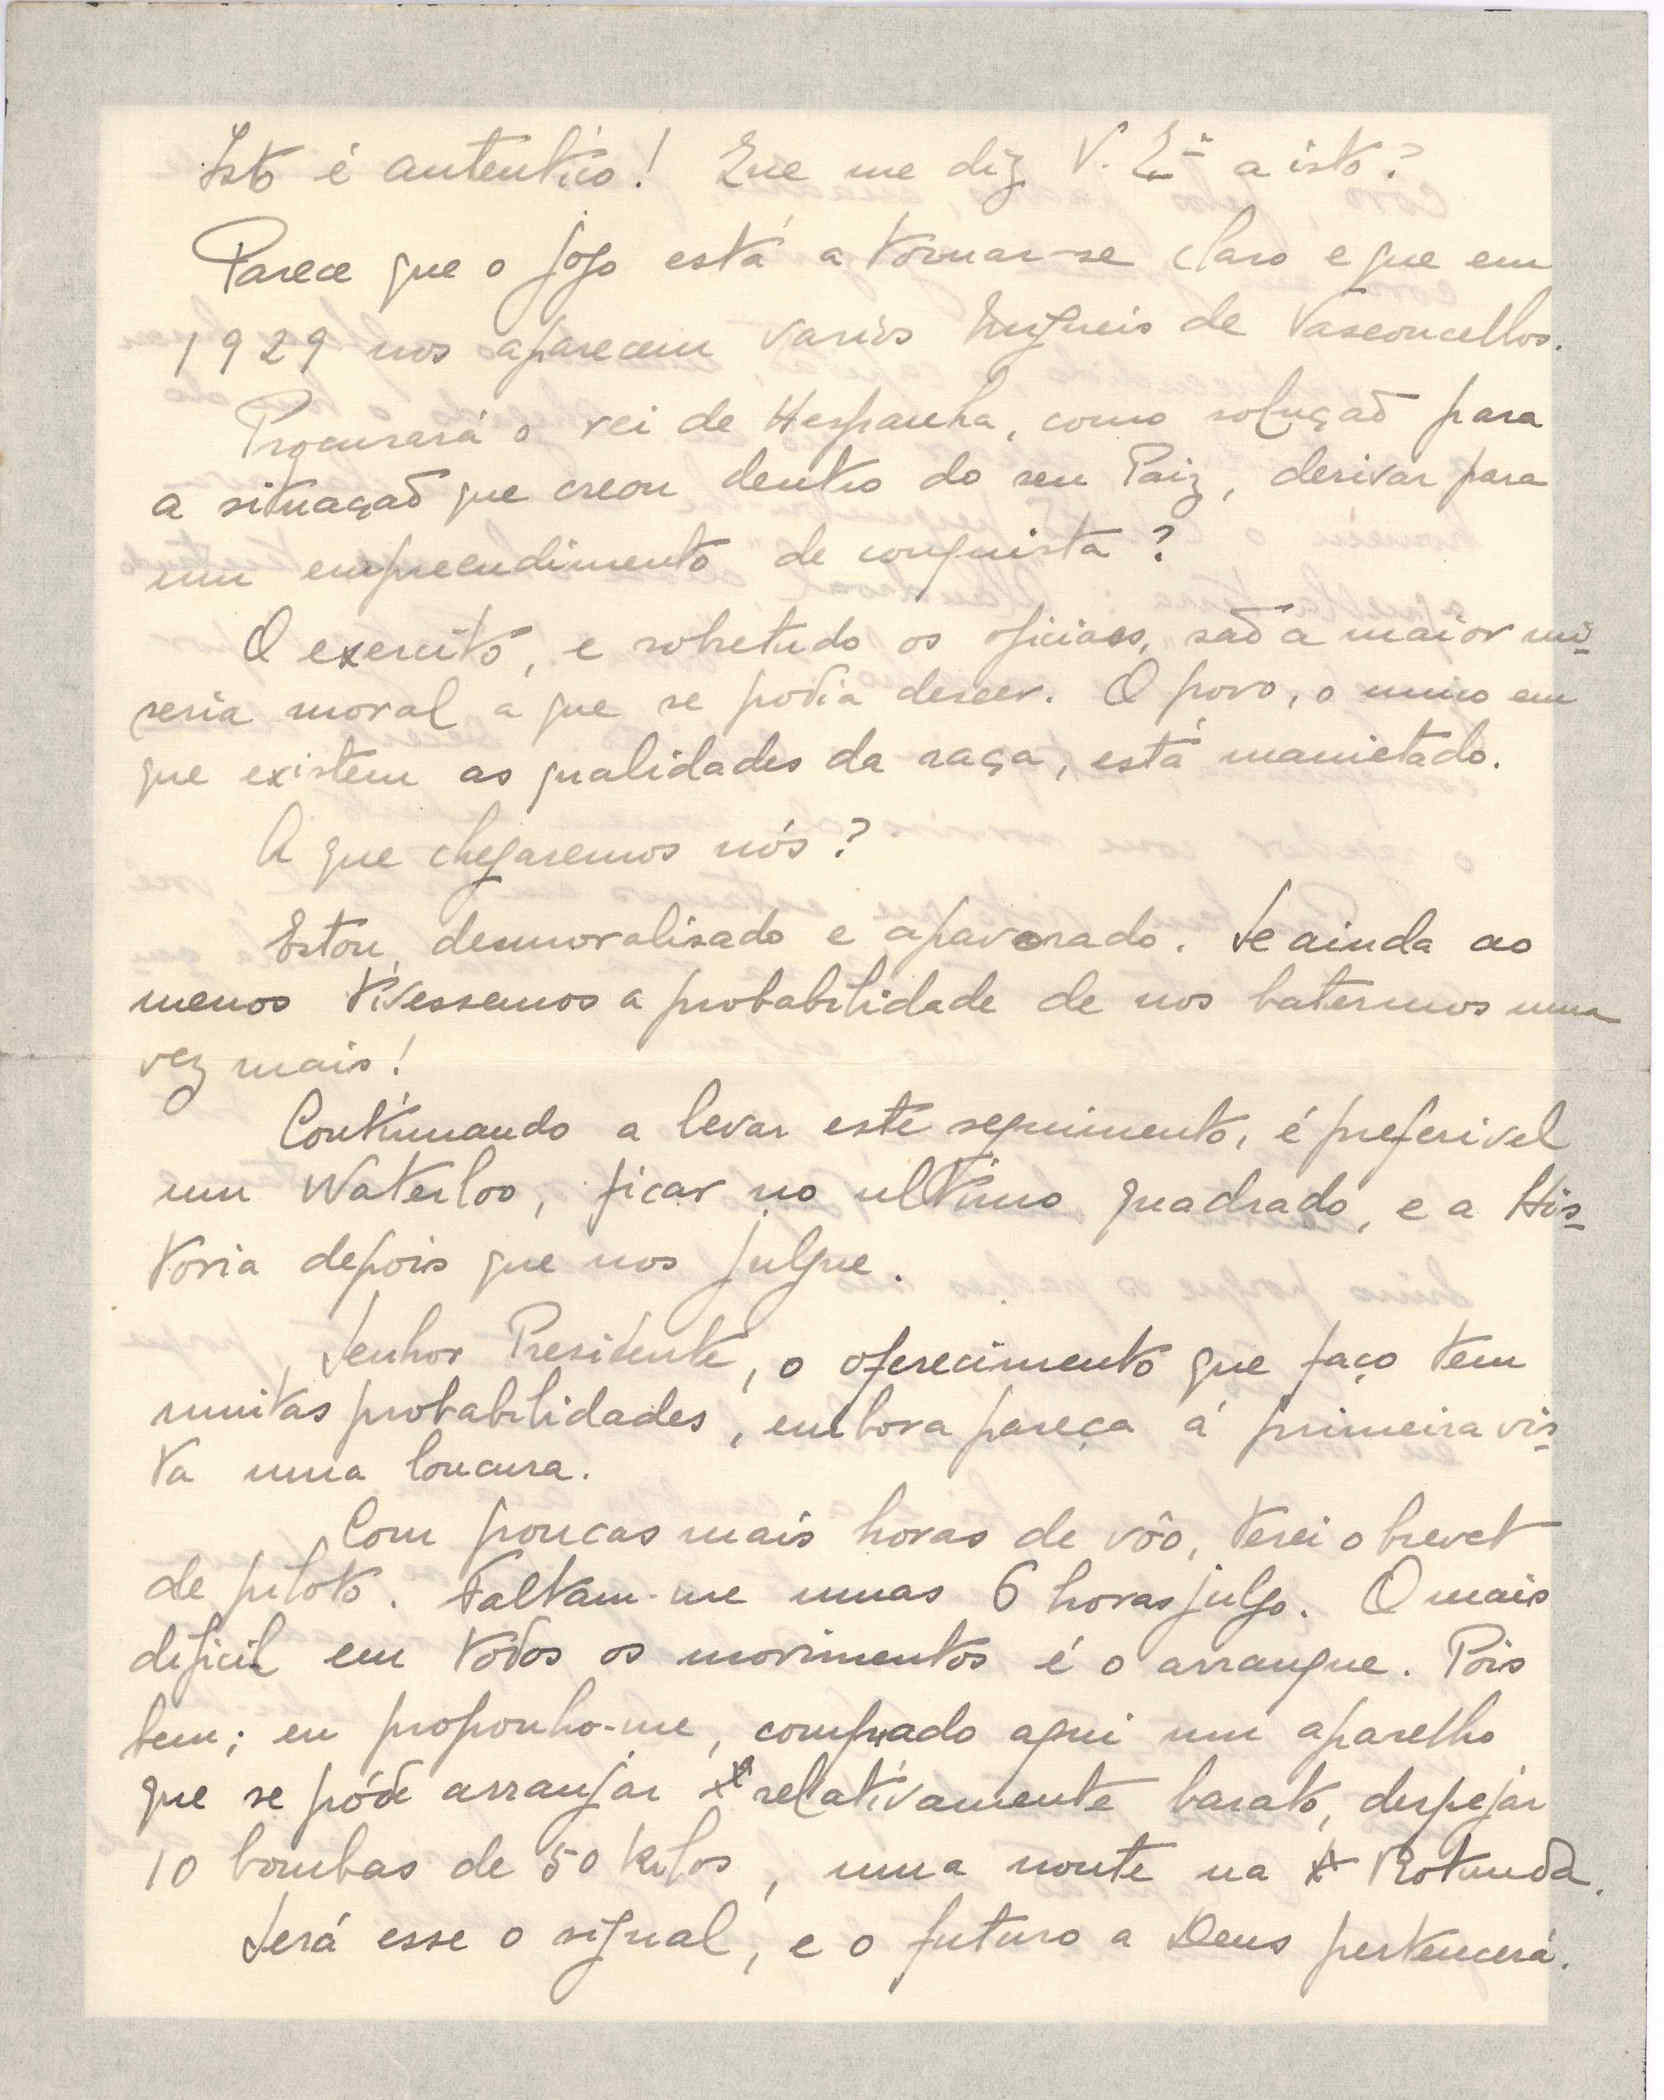 Isto é autentico! Que me diz V. Ex.ª a isto?
Parece que o jogo está a tornar-se claro e que em
1929 nos aparecem varios Migueis de Vasconcellos.
Procurará o rei de Hespanha, como solução para
a situação que creou dentro do seu Paiz, derivar para
um empreendimento de conquista?
O exercito, e sobretudo os oficiaes, são a maior mi-
seria moral a que se podia descer. O povo, o unico em
que existem as qualidades da raça, está manietado.
A que chegaremos nós?
Estou desmoralisado e apavorado. Se ainda ao
menos tivessemos a probabilidade de nos batermos uma
vez mais!
Continuando a levar este seguimento, é preferivel
um Waterloo, ficar no ultimo quadrado, e a His-
toria depois que nos julgue.
Senhor Presidente, o oferecimento que faço tem
muitas probabilidades, embora pareça á primeira vis-
ta uma loucura.
Com poucas mais horas de vôo, terei o brevet
de piloto. Faltam-me umas 6 horas julgo. O mais
dificil em todos os movimentos é o arranque. Pois
bem; eu proponho-me, comprado aqui um aparelho
que se póde arranjar relativamente barato, despejar
10 bombas de 50 kilos, uma noute na Rotunda.
Será esse o signal, e o futuro a Deus pertencerá.